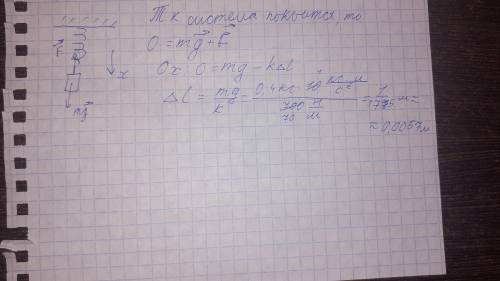 Т к система покоится, то
0 = mg⃗ + F⃗
Ox: 0 = mg - kΔl
Δl = mg/k = 0,4кг · 10 кг·м/с² / 700 Н/м = 1/175 м ≈
≈ 0,0057м
x
mg⃗